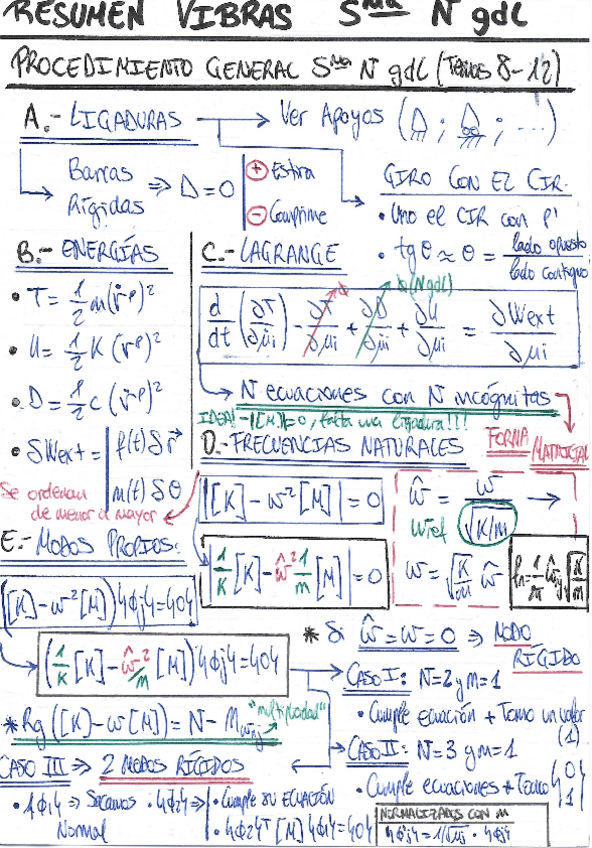 RESUMEN VIBRAS Sma N gdl
PROCEDIMIENTO GENERAL Sma N gdl (Temas 8-12)
A.- LIGADURAS → Ver Apoyos ( ; ; ...)
Barras Rígidas ⇒ D=0
⊕ Estira
⊖ Comprime
GIRO CON EL CIR.
• Uno el CIR con P'
• tg θ ≈ θ = lado opuesto / lado contiguo
B.- ENERGÍAS
• T = 1/2 m(ṙᵖ)²
• U = 1/2 K (rᵖ)²
• D = 1/2 c (ṙᵖ)²
• δWext = | f(t) δr⃗
m(t) δθ
C.- LAGRANGE
0 (N gdl)
d/dt (∂T/∂u̇i) - ∂T/∂ui + ∂D/∂u̇i + ∂U/∂ui = ∂Wext/∂ui
→ N ecuaciones con N incógnitas
IDEA! -|[M]|=0, falta una ligadura!!!
FORMA MATRICIAL
D.- FRECUENCIAS NATURALES
Se ordenan
de menor a mayor
|[K] - ω²[M]| = 0
|1/K [K] - ω̂² 1/m [M]| = 0
ω̂ = ω / √K/m →
ωref
ω = √K/m ω̂
fn = 1/2π ω̂nj √K/m
E.- MODOS PROPIOS:
([K] - ω²[M]) {φj} = {0}
(1/K [K] - ω̂²/m [M]) {φj} = {0}
* Si ω̂ = ω = 0 ⇒ MODO RÍGIDO
→ CASO I: N=2 y m=1
• Cumple ecuación + Tomo un valor (1)
* Rg ([K] - ω[M]) = N - Mω̂nj "multiplicidad"
→ CASO II: N=3 y m=1
• Cumple ecuaciones + Tomo {0 1}
CASO III ⇒ 2 MODOS RÍGIDOS
• {φ1} ⇒ Sacamos Normal • {φ2} ⇒ | • Cumple su ECUACIÓN
• {φ2}ᵀ [M] {φ1} = {0}
NORMALIZADOS CON M
{φ'j} = 1/√μj · {φj}